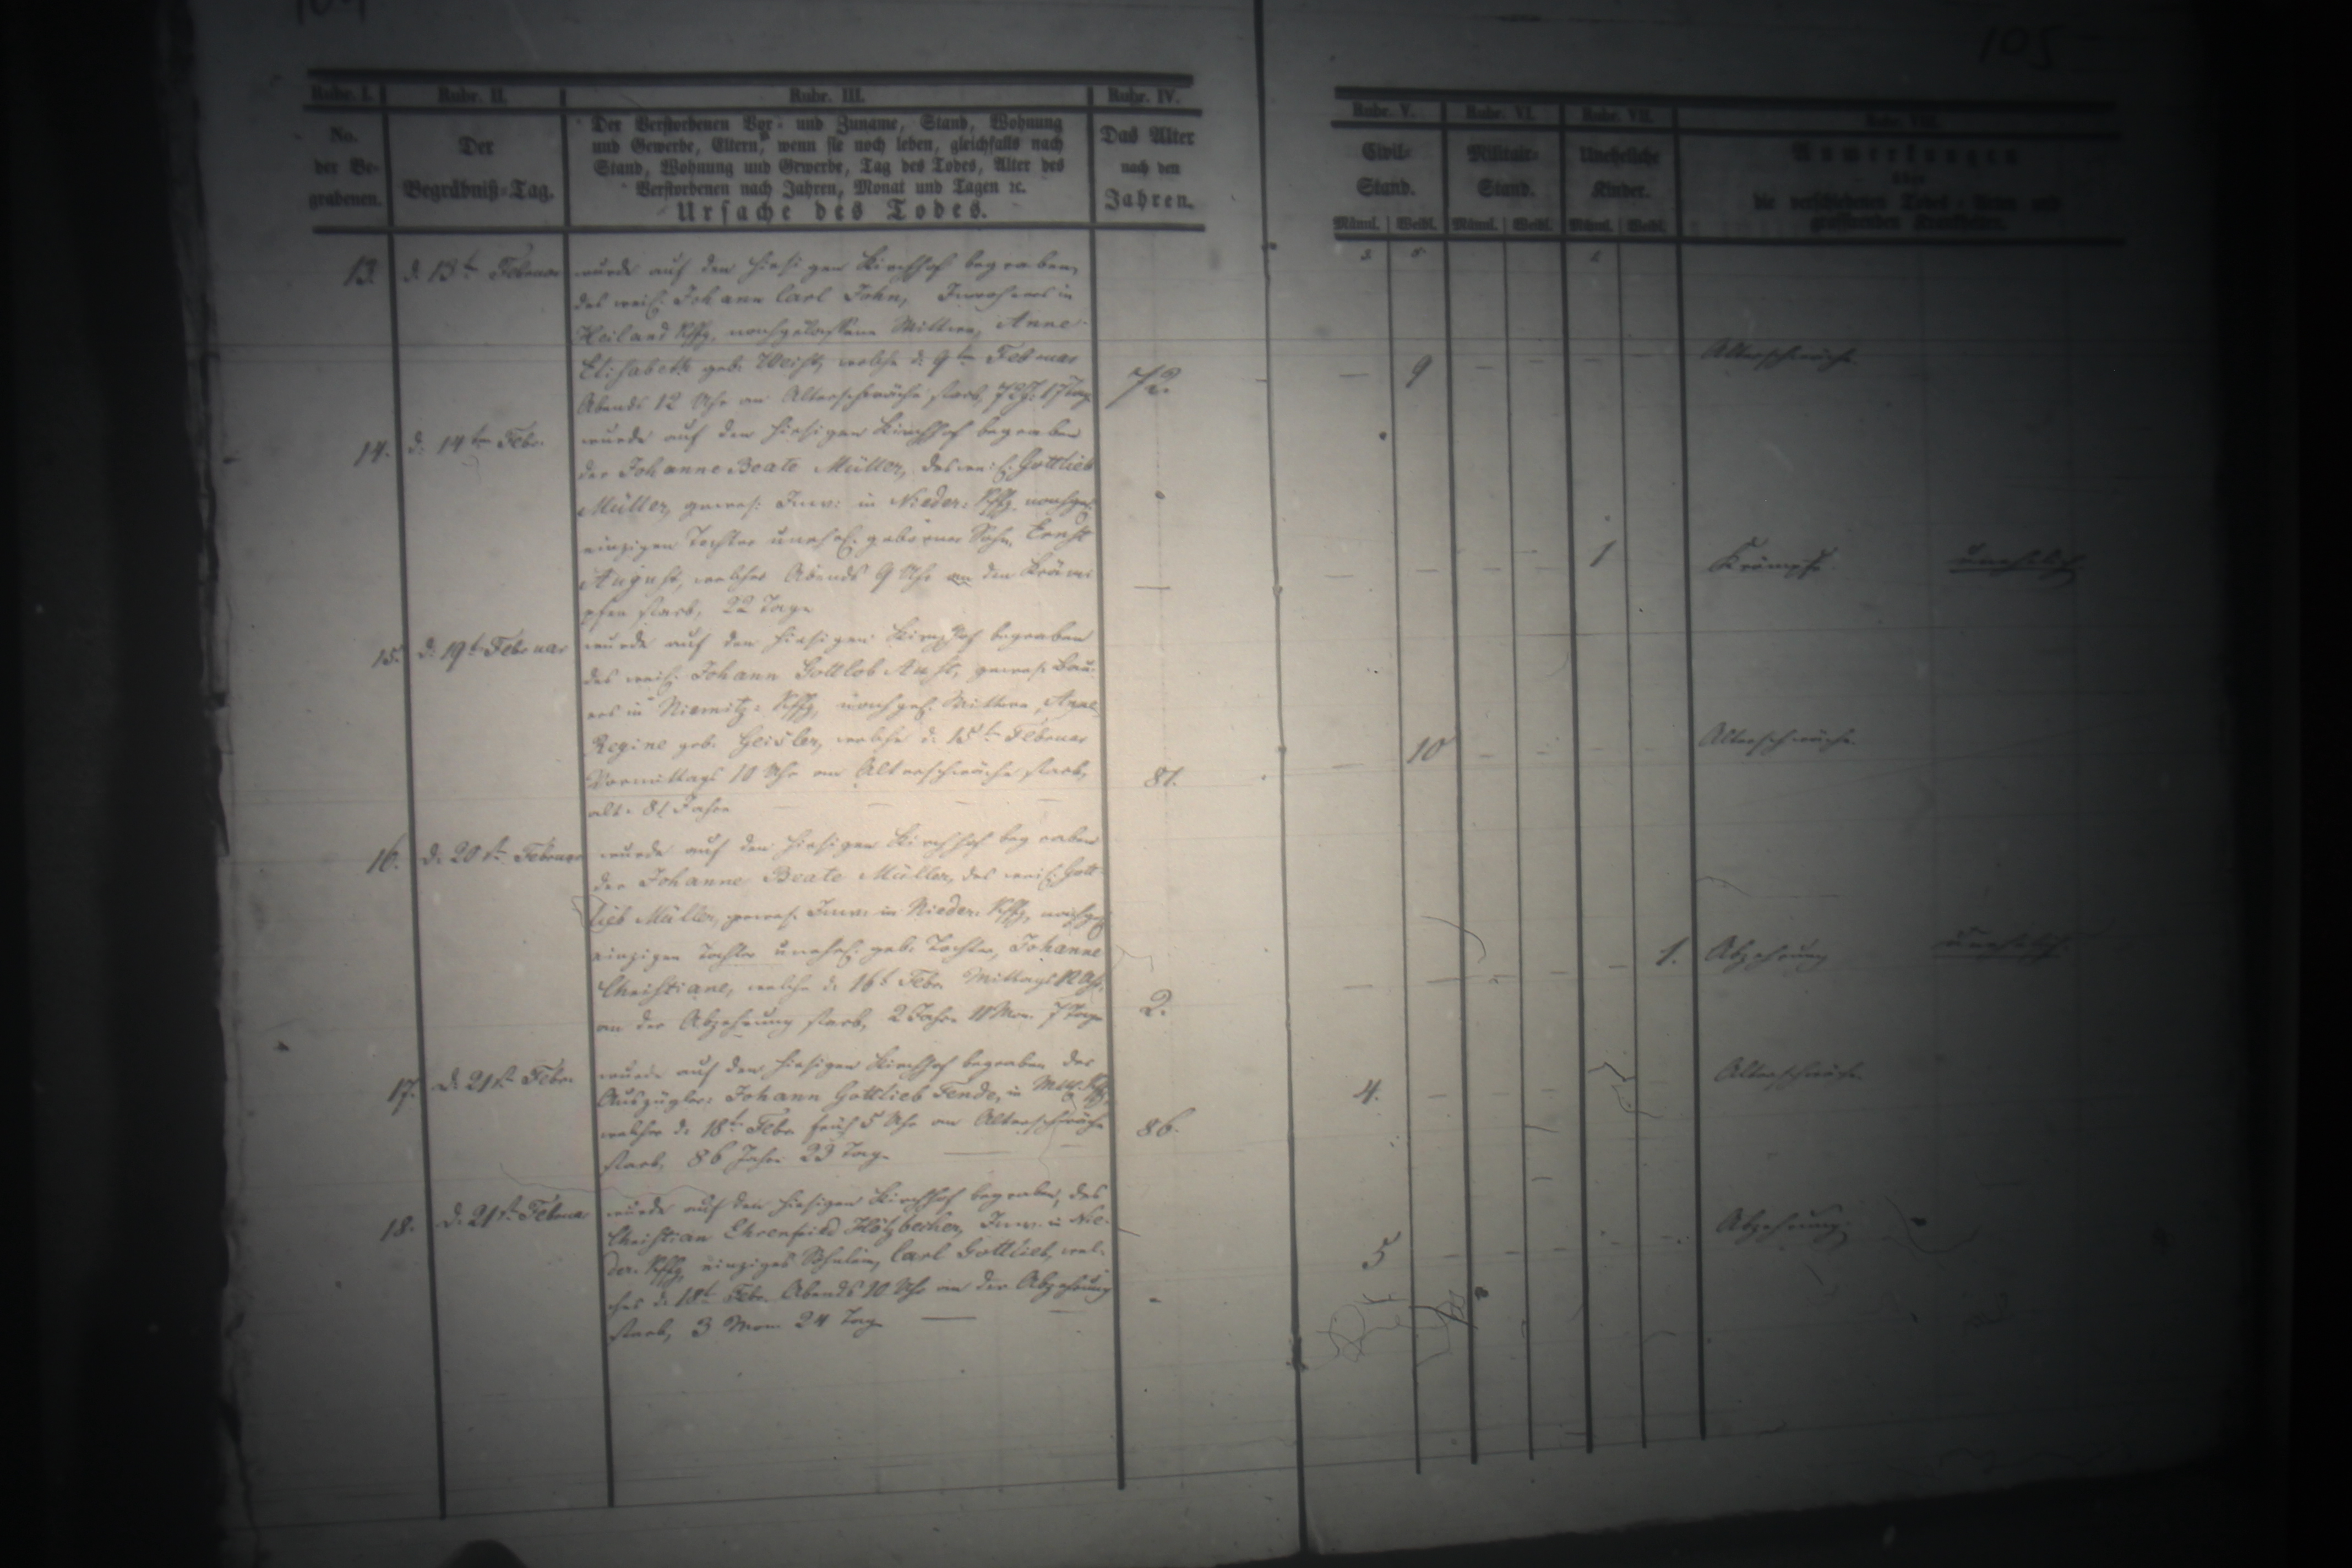 105
Rubr. I.
Rubr. II.
Rubr. III.
Rubr. IV.
No. der Begrabenen.
Der Begräbniß=Tag.
Der Verstorbenen Vor= und Zuname, Stand, Wohnung
und Gewerbe, Eltern, wenn sie noch leben, gleichfalls nach
Stand, Wohnung und Gewerbe, Tag des Todes, Alter des
Verstorbenen nach Jahren, Monat und Tagen ꝛc.
Ursache des Todes.
Das Alter nach den Jahren.
Rubr. V.
Rubr. VI.
Rubr. VII.
Rubr. VIII.
Civil=
Stand.
Militair=
Stand.
Uneheliche
Kinder.
Anmerkungen
über
die verschiedenen Todes=Arten und
grassirenden Krankheiten.
Männl. Weibl. Männl. Weibl. Männl. Weibl.
13. d. 13t Februar
wurde auf den hiesigen Kirchhof begraben,
des weil. Johann Carl John, Inwohners in
Heiland Kffg, nachgelassene Wittwe, Anne
Elisabeth geb. Weist, welche d. 9ten Februar
Abends 12 Uhr an Altersschwäche starb, 72 J. 17 Tage
72. — 9 Altersschwäche
14. d. 14ten Febr.
wurde auf den hiesigen Kirchhof begraben
der Johanne Beate Müller, des weil. Gottlieb
Müller, gewes. Inw. in Nieder=Kffg. nachgel.
einzigen Tochter unehel. geborner Sohn, Ernst
August, welcher Abends 9 Uhr an den Kräm=
pfen starb, 22 Tage
— 1 Krämpfe unehelich
15. d. 19t Februar
wurde auf den hiesigen Kirchhof begraben
des weil. Johann Gottlob Aust, gewes. Bau=
ers in Niemitz=Kffg, nachgel. Wittwe, Anne
Regine geb. Geisler, welche d. 15ten Februar
Vormittags 10 Uhr an Altersschwäche starb,
alt 81 Jahre
81. — 10 Altersschwäche
16. d. 20st Februar
wurde auf den hiesigen Kirchhof begraben
der Johanne Beate Müller, des weil. Gott=
lieb Müller, gewes. Inw. in Nieder=Kffg, nachgel.
einzigen Tochter unehel. geb. Tochter, Johanne
Christiane, welche d. 16t Febr. Mittags 12 Uhr,
an der Abzehrung starb, 2 Jahre 11 Mon. 7 Tage
2. 1. Abzehrung unehelich.
17. d. 21st Febr.
wurde auf den hiesigen Kirchhof begraben der
Auszügler: Johann Gottlieb Fende, in Kffg,
welcher d. 18t Febr. früh 5 Uhr an Altersschwäche
starb, 86 Jahre 23 Tage
86. 4. Altersschwäche
18. d. 21st Februar
wurde auf den hiesigen Kirchhof begraben, des
Christian Ehrenfried Holzbecher, Inw. in Nie=
der=Kffg, einziges Söhnlein, Carl Gottlieb, wel=
ches d. 18t Febr. Abends 10 Uhr an der Abzehrung
starb, 3 Mon. 24 Tage
5 Abzehrung